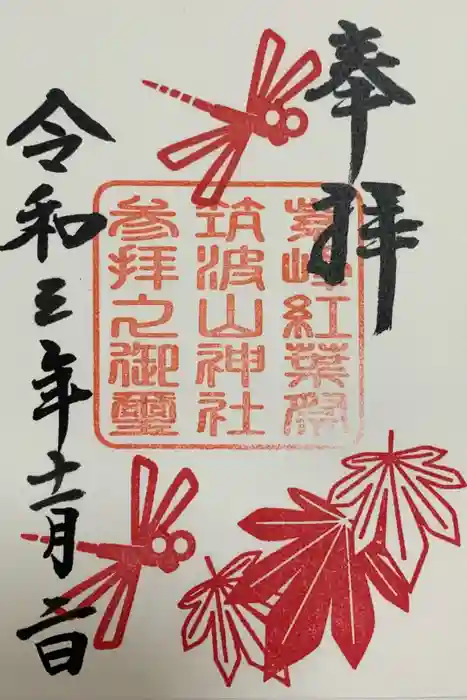 奉拝
紫峰紅葉祭
筑波山神社
参拝之御璽
令和三年十一月二日